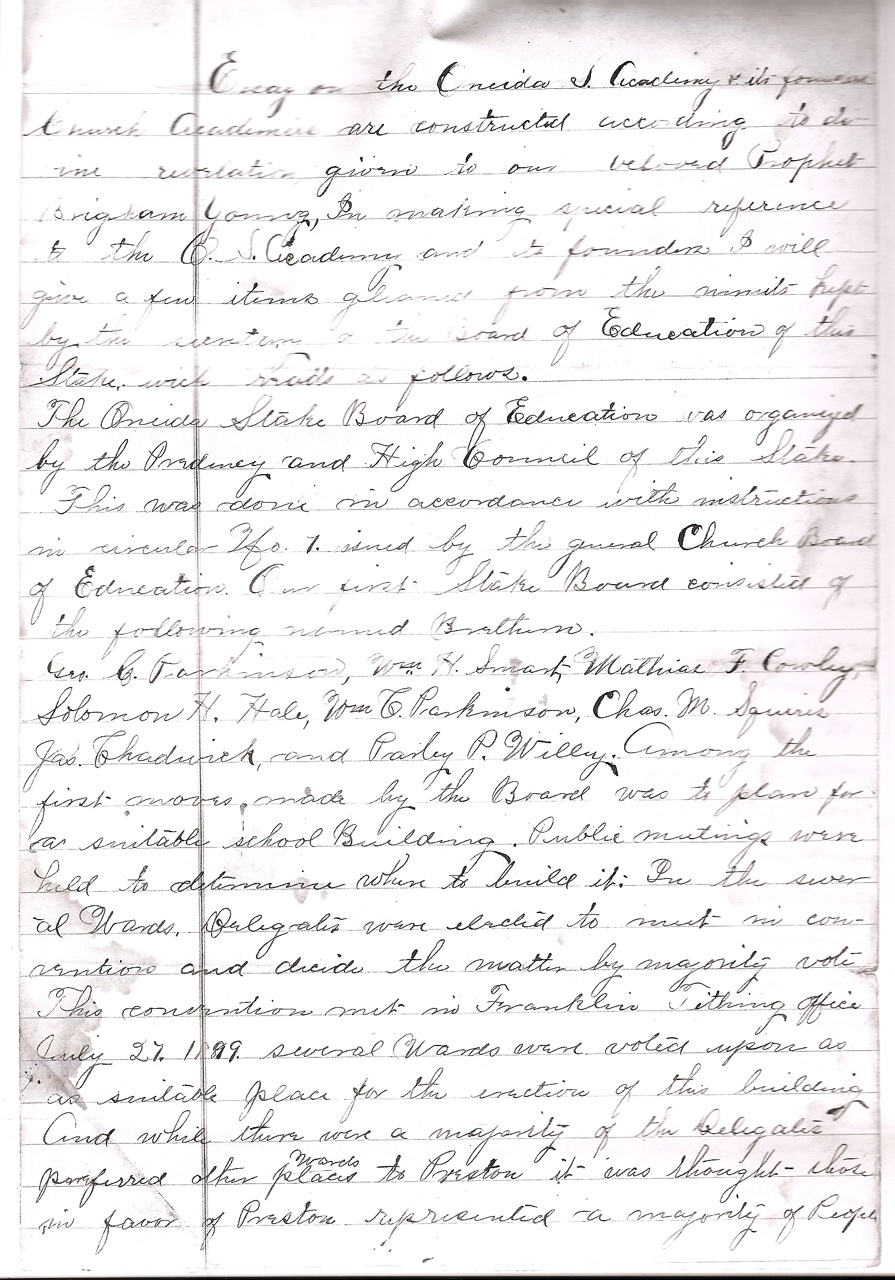 Essay on the Oneida S. Academy & its founders
Church Academies are constructed according to di-
vine revelation given to our beloved Prophet
Brigham Young, In making special reference
to the O. S. Academy and its founders I will
give a few items gleaned from the minits kept
by the secretary o the Board of Education of this
Stake. wich reads as follows.
The Oneida Stake Board of Education was organized
by the and High Council of this Stake.
This was done in accordance with instructions
in circular No. 1. issued by the general Church Board
of Education. Our first Stake Board consisted of
the following named Brethern.
Geo. C. Parkinson, Wm H. Smart, Mathias F. Cowley,
Solomon H. Hale, Wm C. Parkinson, Chas. M. Squires
Jas. Chadwick, and Parley P. Willey. Among the
first moves made by the Board was to plan for
a suitable school Building. Public meetings were
held to determine where to build it: In the sever
al Wards. Delegates were elected to meet in con-
vention and decide the matter by majority vote
This convention met in Franklin Tithing office
July 27. several Wards were voted upon as
as suitable place for the erection of this building
And while there were a majority of the Delegates
preferred other places Wards to Preston it was thought those
in favor of Preston represented a majority of People